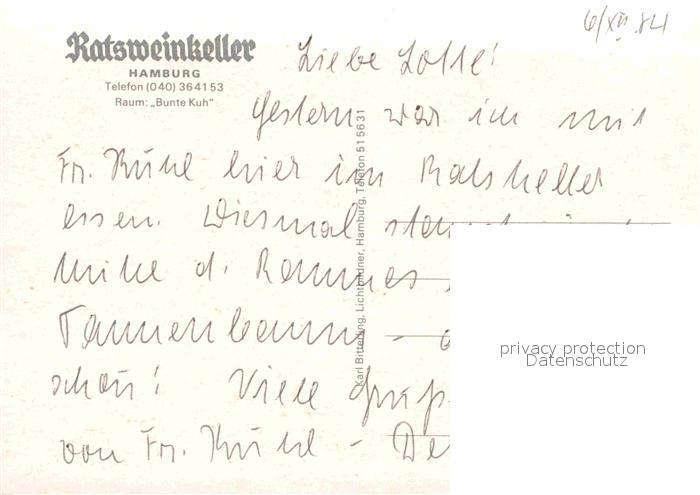 6/XII.84
Ratsweinkeller
HAMBURG
Telefon (040) 36 41 53
Raum: „Bunte Kuh“
Liebe Lotte!
Gestern war ich mit
Fr. Kühl hier im Ratskeller
essen. Diesmal
Mitte d. Raumes
Tannenbaum –
schön! Viele
von Fr. Kühl –
Karl Bitterling, Lichtbildner, Hamburg, Telefon 51 56 31
privacy protection
Datenschutz